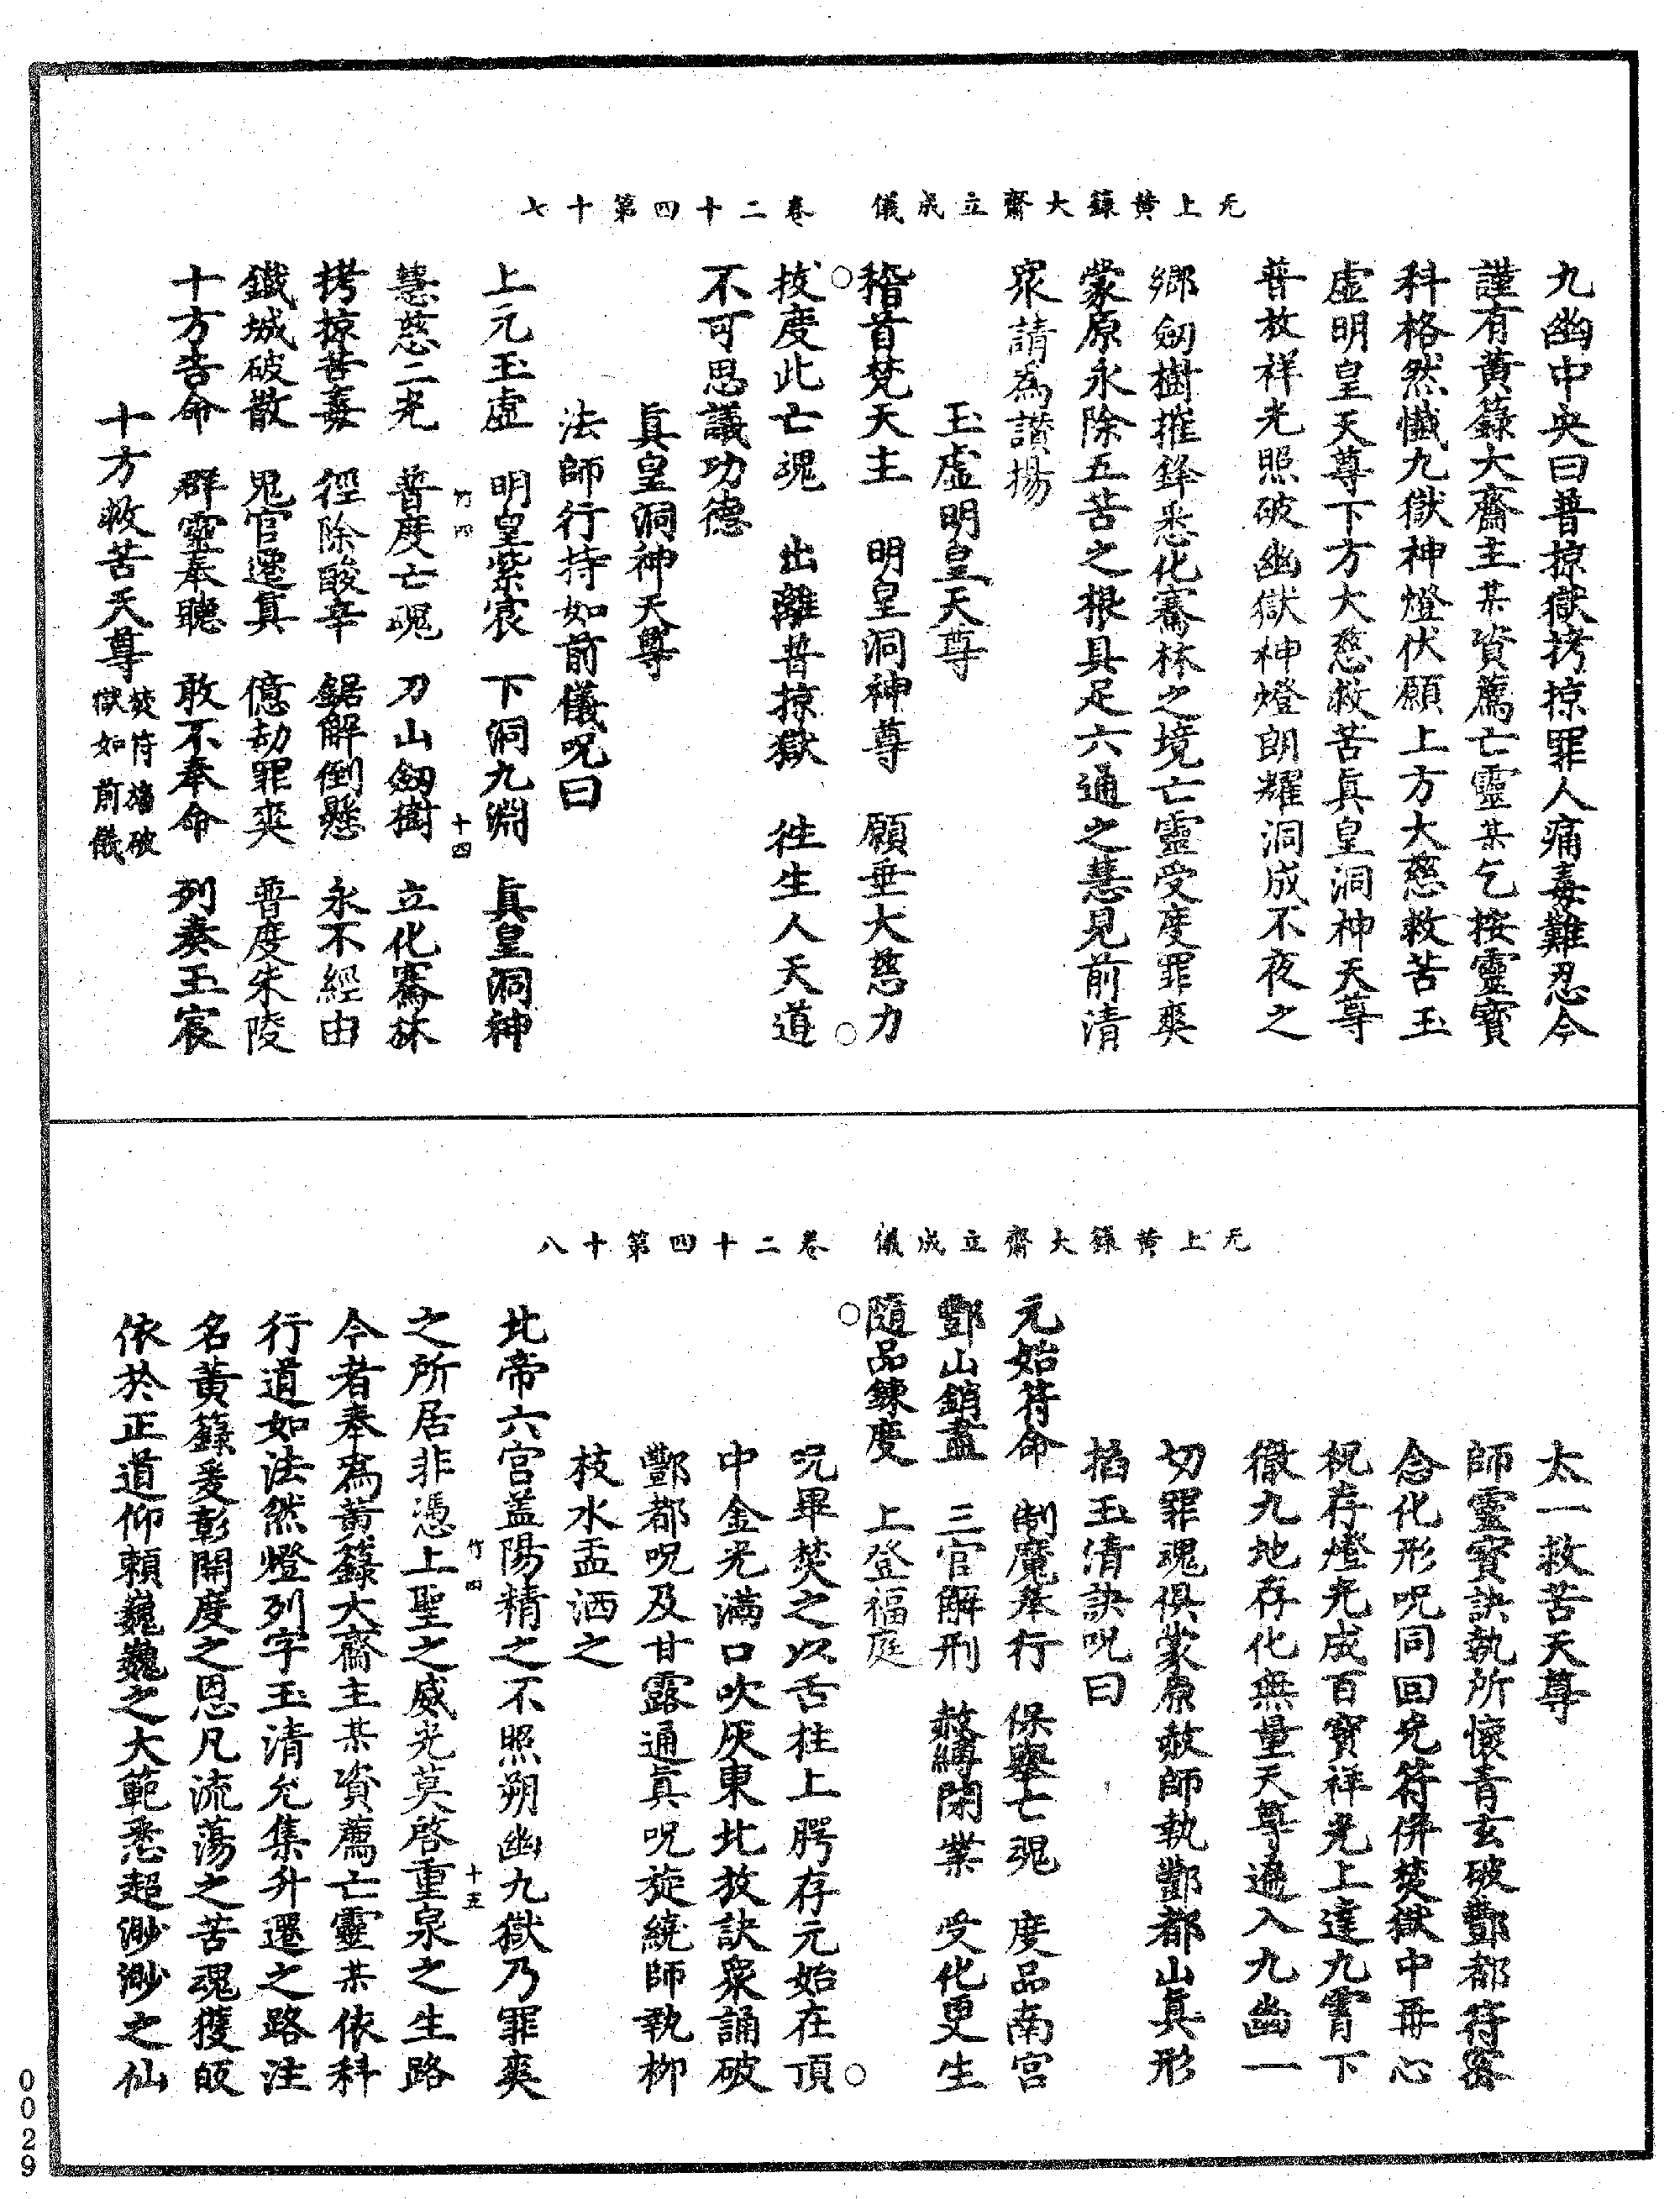 无上黃籙大齋立成儀　卷二十四第十七
九幽中央曰普掠獄拷掠罪人痛毒難忍今
謹有黃籙大齋主某資薦亡靈某乞按靈寶
科格然懺九獄神燈伏願上方大慈救苦玉
虛明皇天尊下方大慈救苦眞皇洞神天尊
普放祥光照破幽獄神燈朗耀洞成不夜之
鄉劒樹摧鋒悉化騫林之境亡靈受度罪爽
蒙原永除五苦之根具足六通之慧見前清
衆請為讃揚
玉虛明皇天尊
稽首梵天主　明皇洞神尊　願垂大慈力○
○拔度此亡魂　出離普掠獄　徃生人天道
不可思議功德
眞皇洞神天尊
法師行持如前儀呪曰
上元玉虛　明皇紫宸　下洞九淵　眞皇洞神
竹四　十四
慧慈二光　普度亡魂　刀山劒樹　立化騫林
拷掠苦毒　徑除酸辛　鋸解倒懸　永不經由
鐵城破散　鬼官遷眞　億劫罪爽　普度朱陵
十方告命　群靈奉聽　敢不奉命　列奏玉宸
十方救苦天尊　焚符牆破
獄如前儀
无上黃籙大齋立成儀　卷二十四第十八
太一救苦天尊
師靈寶訣執所懷青玄破酆都符密
念化形呪同回光符併焚獄中再心
祝存燈光成百寶祥光上達九霄下
徹九地存化無量天尊遍入九幽一
切罪魂俱蒙原赦師執酆都山眞形
掐玉清訣呪曰
元始符命　制魔奉行　保舉亡魂　度品南宮
酆山銷盡　三官解刑　赦縛閉業　受化更生
○隨品鍊度　上登福庭　○
呪畢焚之以舌柱上腭存元始在頂
中金光滿口吹灰東北放訣衆誦破
酆都呪及甘露通眞呪旋繞師執柳
枝水盂洒之
北帝六宮盖陽精之不照朔幽九獄乃罪爽
之所居非憑上聖之威光莫啓重泉之生路
竹四　十五
今者奉為黃籙大齋主某資薦亡靈某依科
行道如法然燈列字玉清允集升遷之路注
名黃籙爰彰開度之恩凡流蕩之苦魂獲皈
依於正道仰賴巍巍之大範悉超渺渺之仙
0029